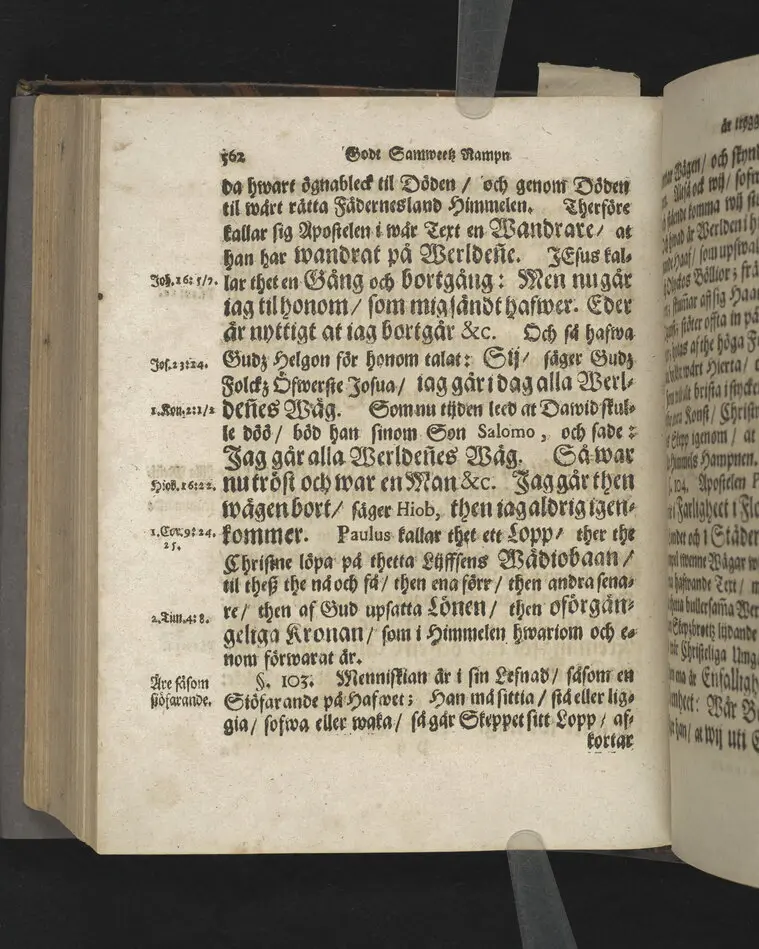 562 Godt Samwetz Nampn
da hwart ögnableck til Döden / och genom Döden
til wårt rätta Fädernesland Himmelen. Therföre
kallar sig Apostelen i wår Text en Wandrare / at
han har wandrat på Werldeñe. JEsus kal-
Joh. 16: 5/7. lar thet en Gång och bortgång: Men nu går
iag til honom / som mig sändt hafwer. Eder
är nyttigt at iag bortgår &c. Och så hafwa
Jos. 23:24. Gudz Helgon för honom talat: Sij / säger Gudz
Folckz Öfwerste Josua / iag går i dag alla Werl-
1. Kon. 2: 1/2 deñes Wäg. Som nu tijden leed at Dawid skul-
le döö / böd han sinom Son Salomo, och sade:
Jag går alla Werldeñes Wäg. Så war
Hiob. 16:22. nu tröst och war en Man &c. Jag går then
wägen bort / säger Hiob, then iag aldrig igen-
1. Cor. 9: 24. kommer. Paulus kallar thet ett Lopp / ther the
25. Christne löpa på thetta Lijffsens Wädiobaan /
til theß the nå och få / then ena förr / then andra sena-
2. Tim. 4: 8. re / then af Gud upsatta Lönen / then oförgän-
geliga Kronan / som i Himmelen hwariom och e-
nom förwarat är.
Äre såsom §. 103. Menniskian är i sin Lefnad / såsom en
siöfarande. Siöfarande på Hafwet; Han må sittia / stå eller lig-
gia / sofwa eller waka / så går Skeppet sitt Lopp / af-
kortar